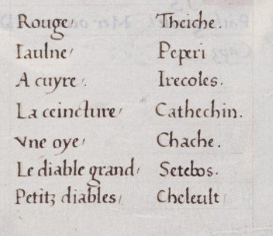 Rouge/ Theiche.
Iaulne/ Peperi
A cuyre/. Irecoles.
La ceincture/ Cathechin.
vne oye/ Chache.
Le diable grand/ Setebos.
Petitz diables/ Cheleult